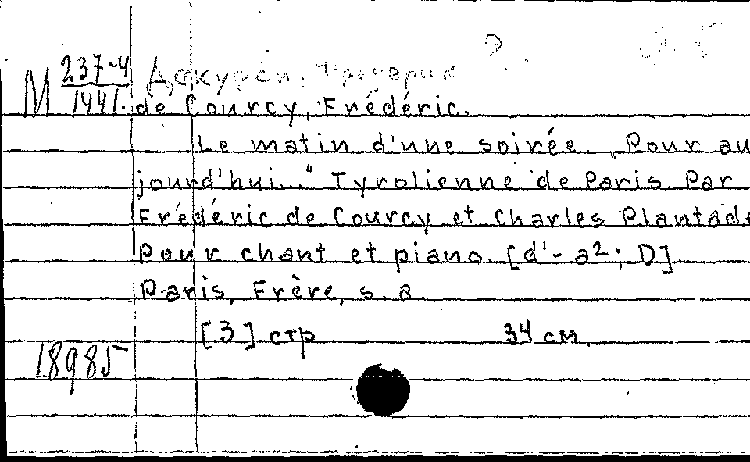 М 237-4/1441.
de Courcy, Frédéric.
Le matin d'une soirée. „Pour au
jourd'hui..." Tyrolienne de Paris Par
Frédéric de Courcy et Charles Plantade
Pour chant et piano. [d'-a²; D]
Paris, Frère, s. a.
[3] стр 34 см.
18985